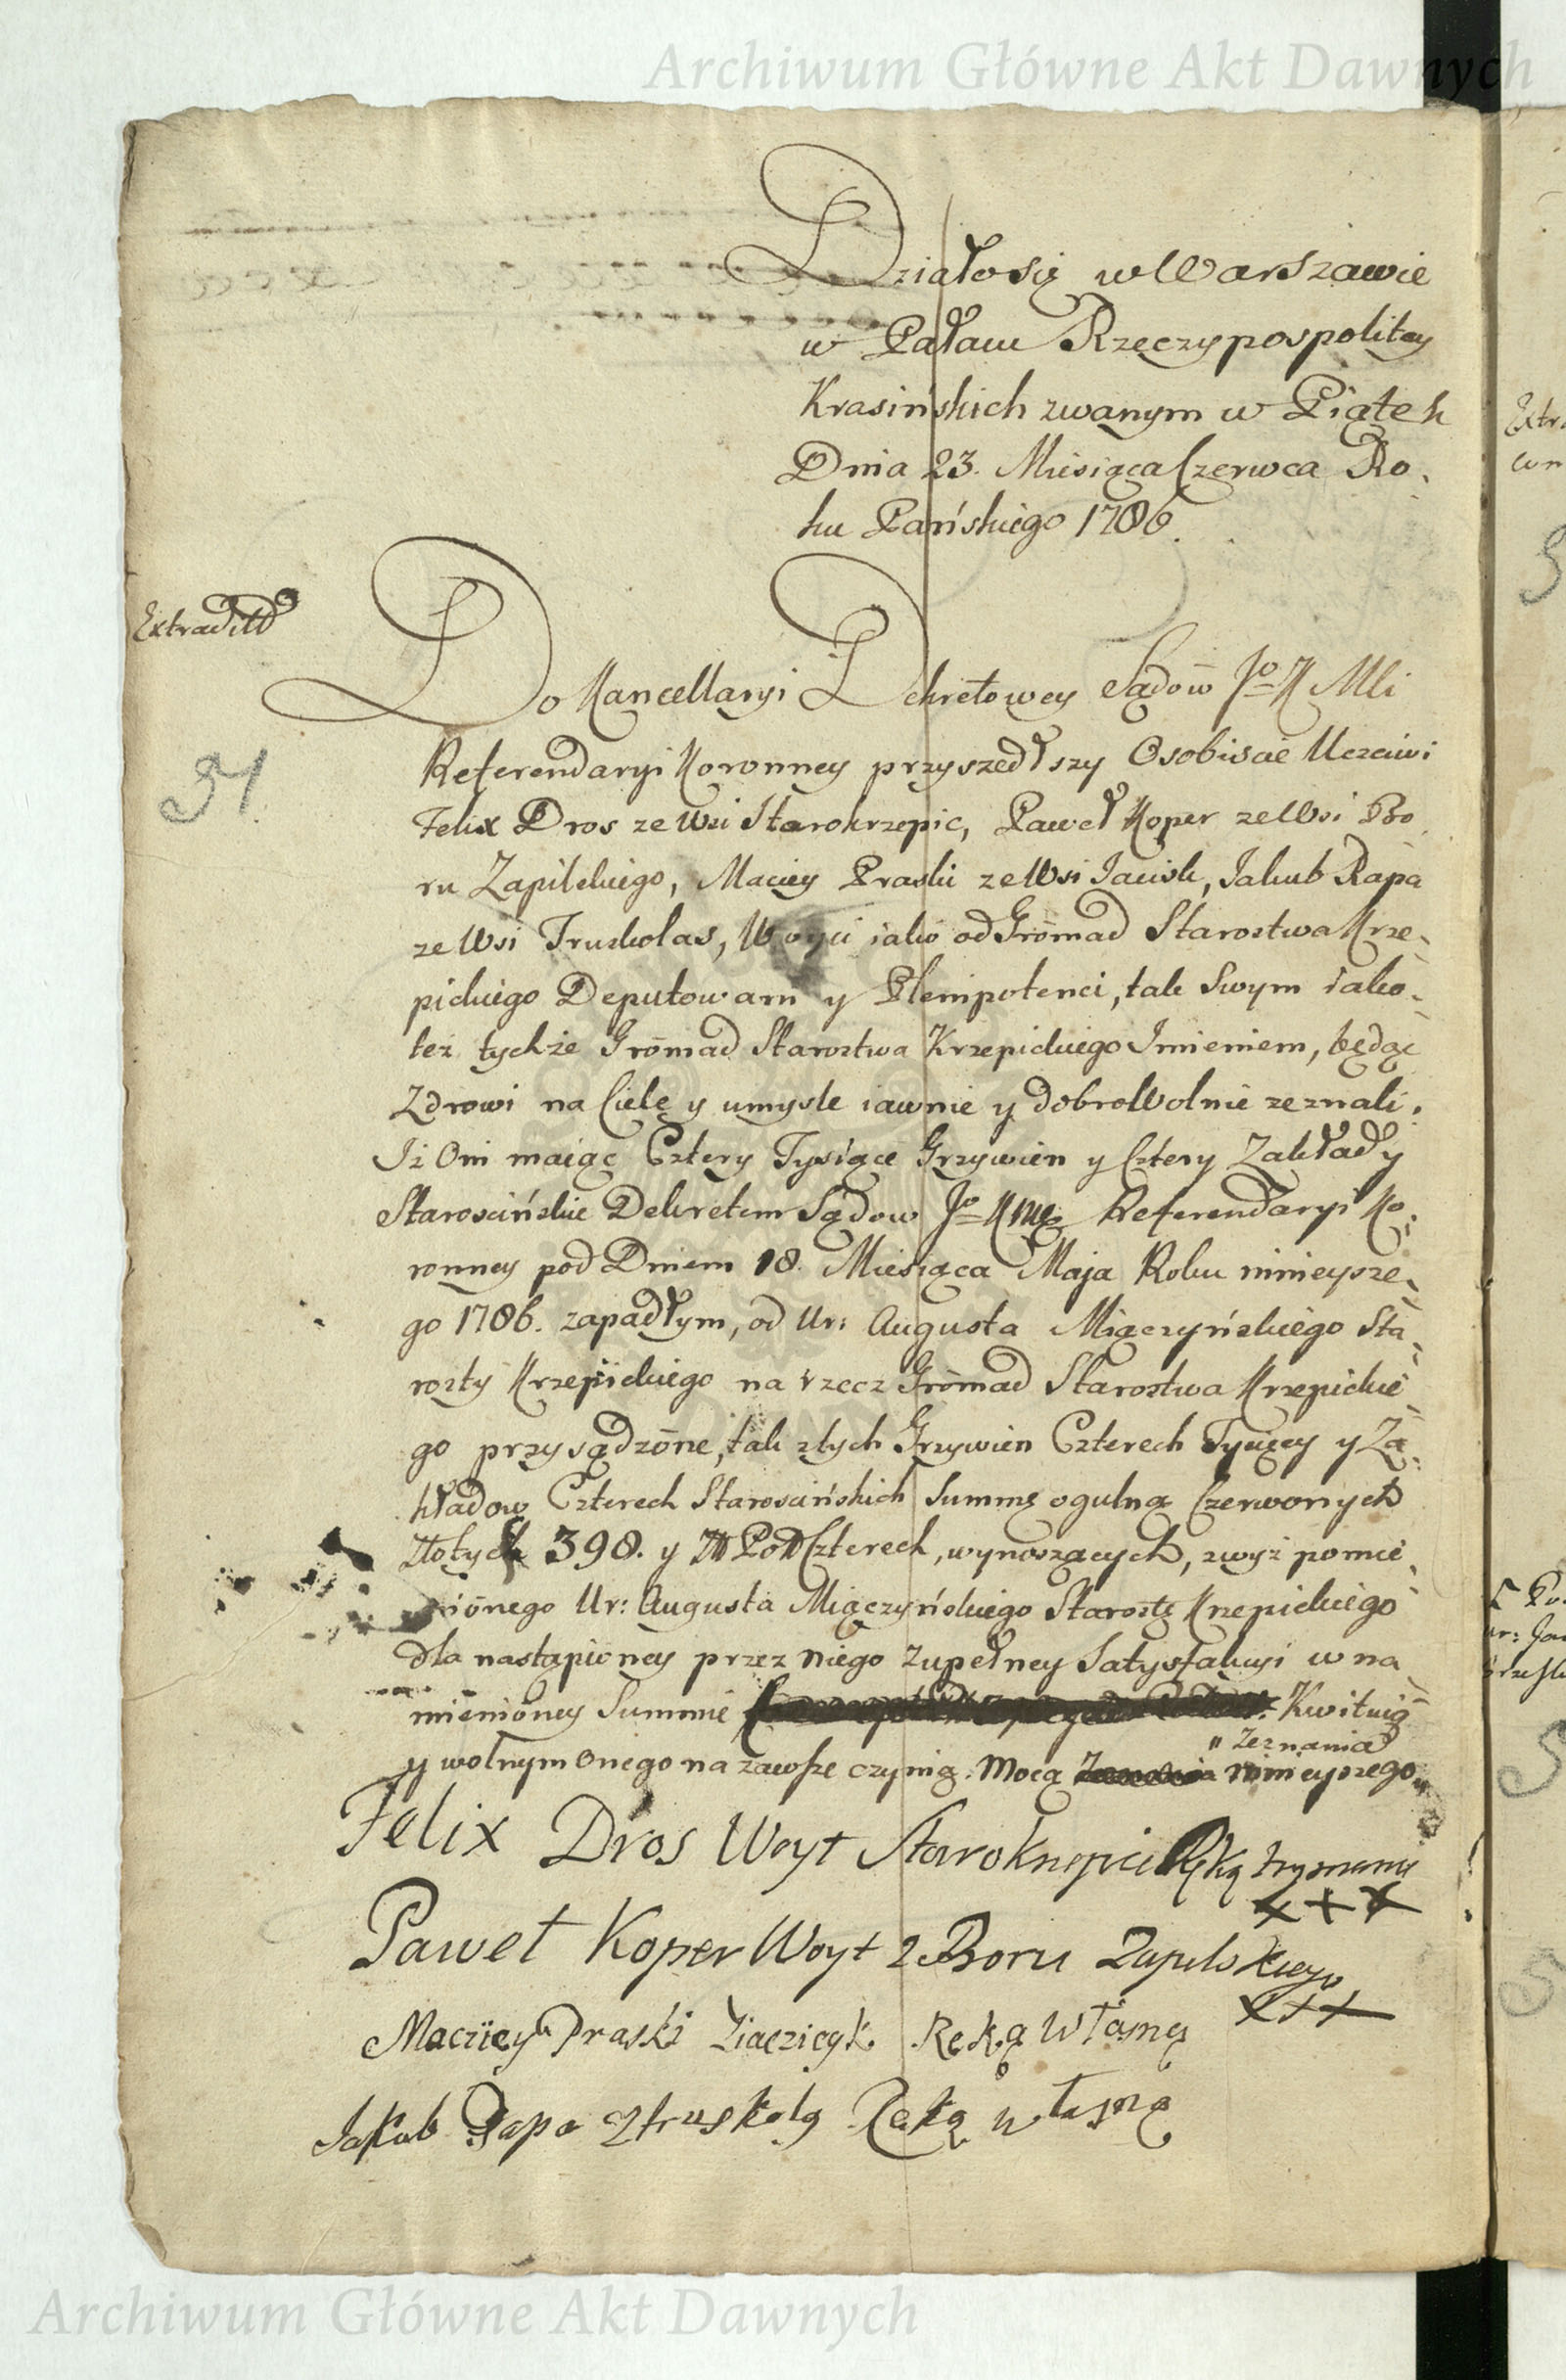 Archiwum Główne Akt Dawnych
Działo się w Warszawie
w Pałacu Rzeczypospolitey
Krasińskich zwanym w Piątek
Dnia 23. Miesiąca Czerwca Ro-
ku Pańskiego 1786.
Extradit
Do Kancellaryi Dekretowey Sądow Jo K Mci
Referendaryi Koronney przyszedłszy Osobiscie Uczciwi
51.
Felix Dros ze Wsi Starokrzepic, Paweł Koper ze Wsi Bo-
ru Zapilskiego, Maciey Praski ze Wsi Jacisk, Jakub Rapa
ze Wsi Truskolas, Woyci iako od Gromad Starostwa Krze-
pickiego Deputowani y Plenipotenci, tak Swym iako-
tez tychże Gromad Starostwa Krzepickiego Imieniem, będąc
Zdrowi na Ciele y umysle iawnie y dobroWolnie zeznali.
Iż Oni maiąc Cztery Tysiące Grzywien y Cztery Zakłady
Starościńskie Dekretem Sądow Jo K Mci Referendaryi Ko-
ronney pod Dniem 18. Miesiąca Maja Roku ninieysze-
go 1786. zapadłym, od Ur: Augusta Miączyńskiego Sta-
rosty Krzepickiego na rzecz Gromad Starostwa Krzepickie-
go przysądzone, tak z tych Grzywien Czterech Tysięcy y Za-
kładow Czterech Starościńskich Summę ogulną Czerwonych
Złotych 398. y Zł Pol Czterech, wynoszących, zwyż pomie-
nionego Ur: Augusta Miączyńskiego Starostę Krzepickiego
dla nastąpioney przez niego zupełney Satysfakcyi w na-
mienioney Summie Kwituią
y wolnym onego na zawsze czynią. Mocą ninieyszego
" Zeznania
Felix Dros Woyt Starokrzepicki Ręką trzymaną
x + x
Paweł Koper Woyt z Boru Zapilskiego
x + +
Maciiey Praski Ziacziesk Ręką Własną
Jakub Rapa z truskolą Ręką własną
Archiwum Główne Akt Dawnych